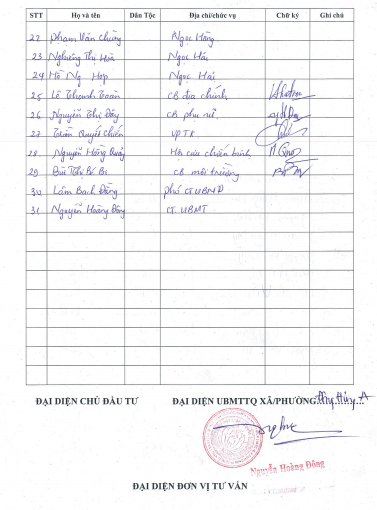 STT Họ và tên Dân Tộc Địa chỉ/chức vụ Chữ ký Ghi chú
22 Phạm Văn Chừng Ngọc Hồng
23 Nghiêng Thị Hoà Ngọc Hải
24 Hồ Ng Hợp Ngọc Hải
25 Lê Thanh Toàn CB địa chính
26 Nguyễn Thị Đây CB phụ nữ
27 Trần Quyết Chiến VPTK
28 Nguyễn Hồng Quảng Hội cựu chiến binh
29 Bùi Thị Bé Bi CB môi trường
30 Lâm Bạch Đằng phó CT UBND
31 Nguyễn Hoàng Đông CT. UBMT
ĐẠI DIỆN CHỦ ĐẦU TƯ ĐẠI DIỆN UBMTTQ XÃ/PHƯỜNG
Nguyễn Hoàng Đông
ĐẠI DIỆN ĐƠN VỊ TƯ VẤN